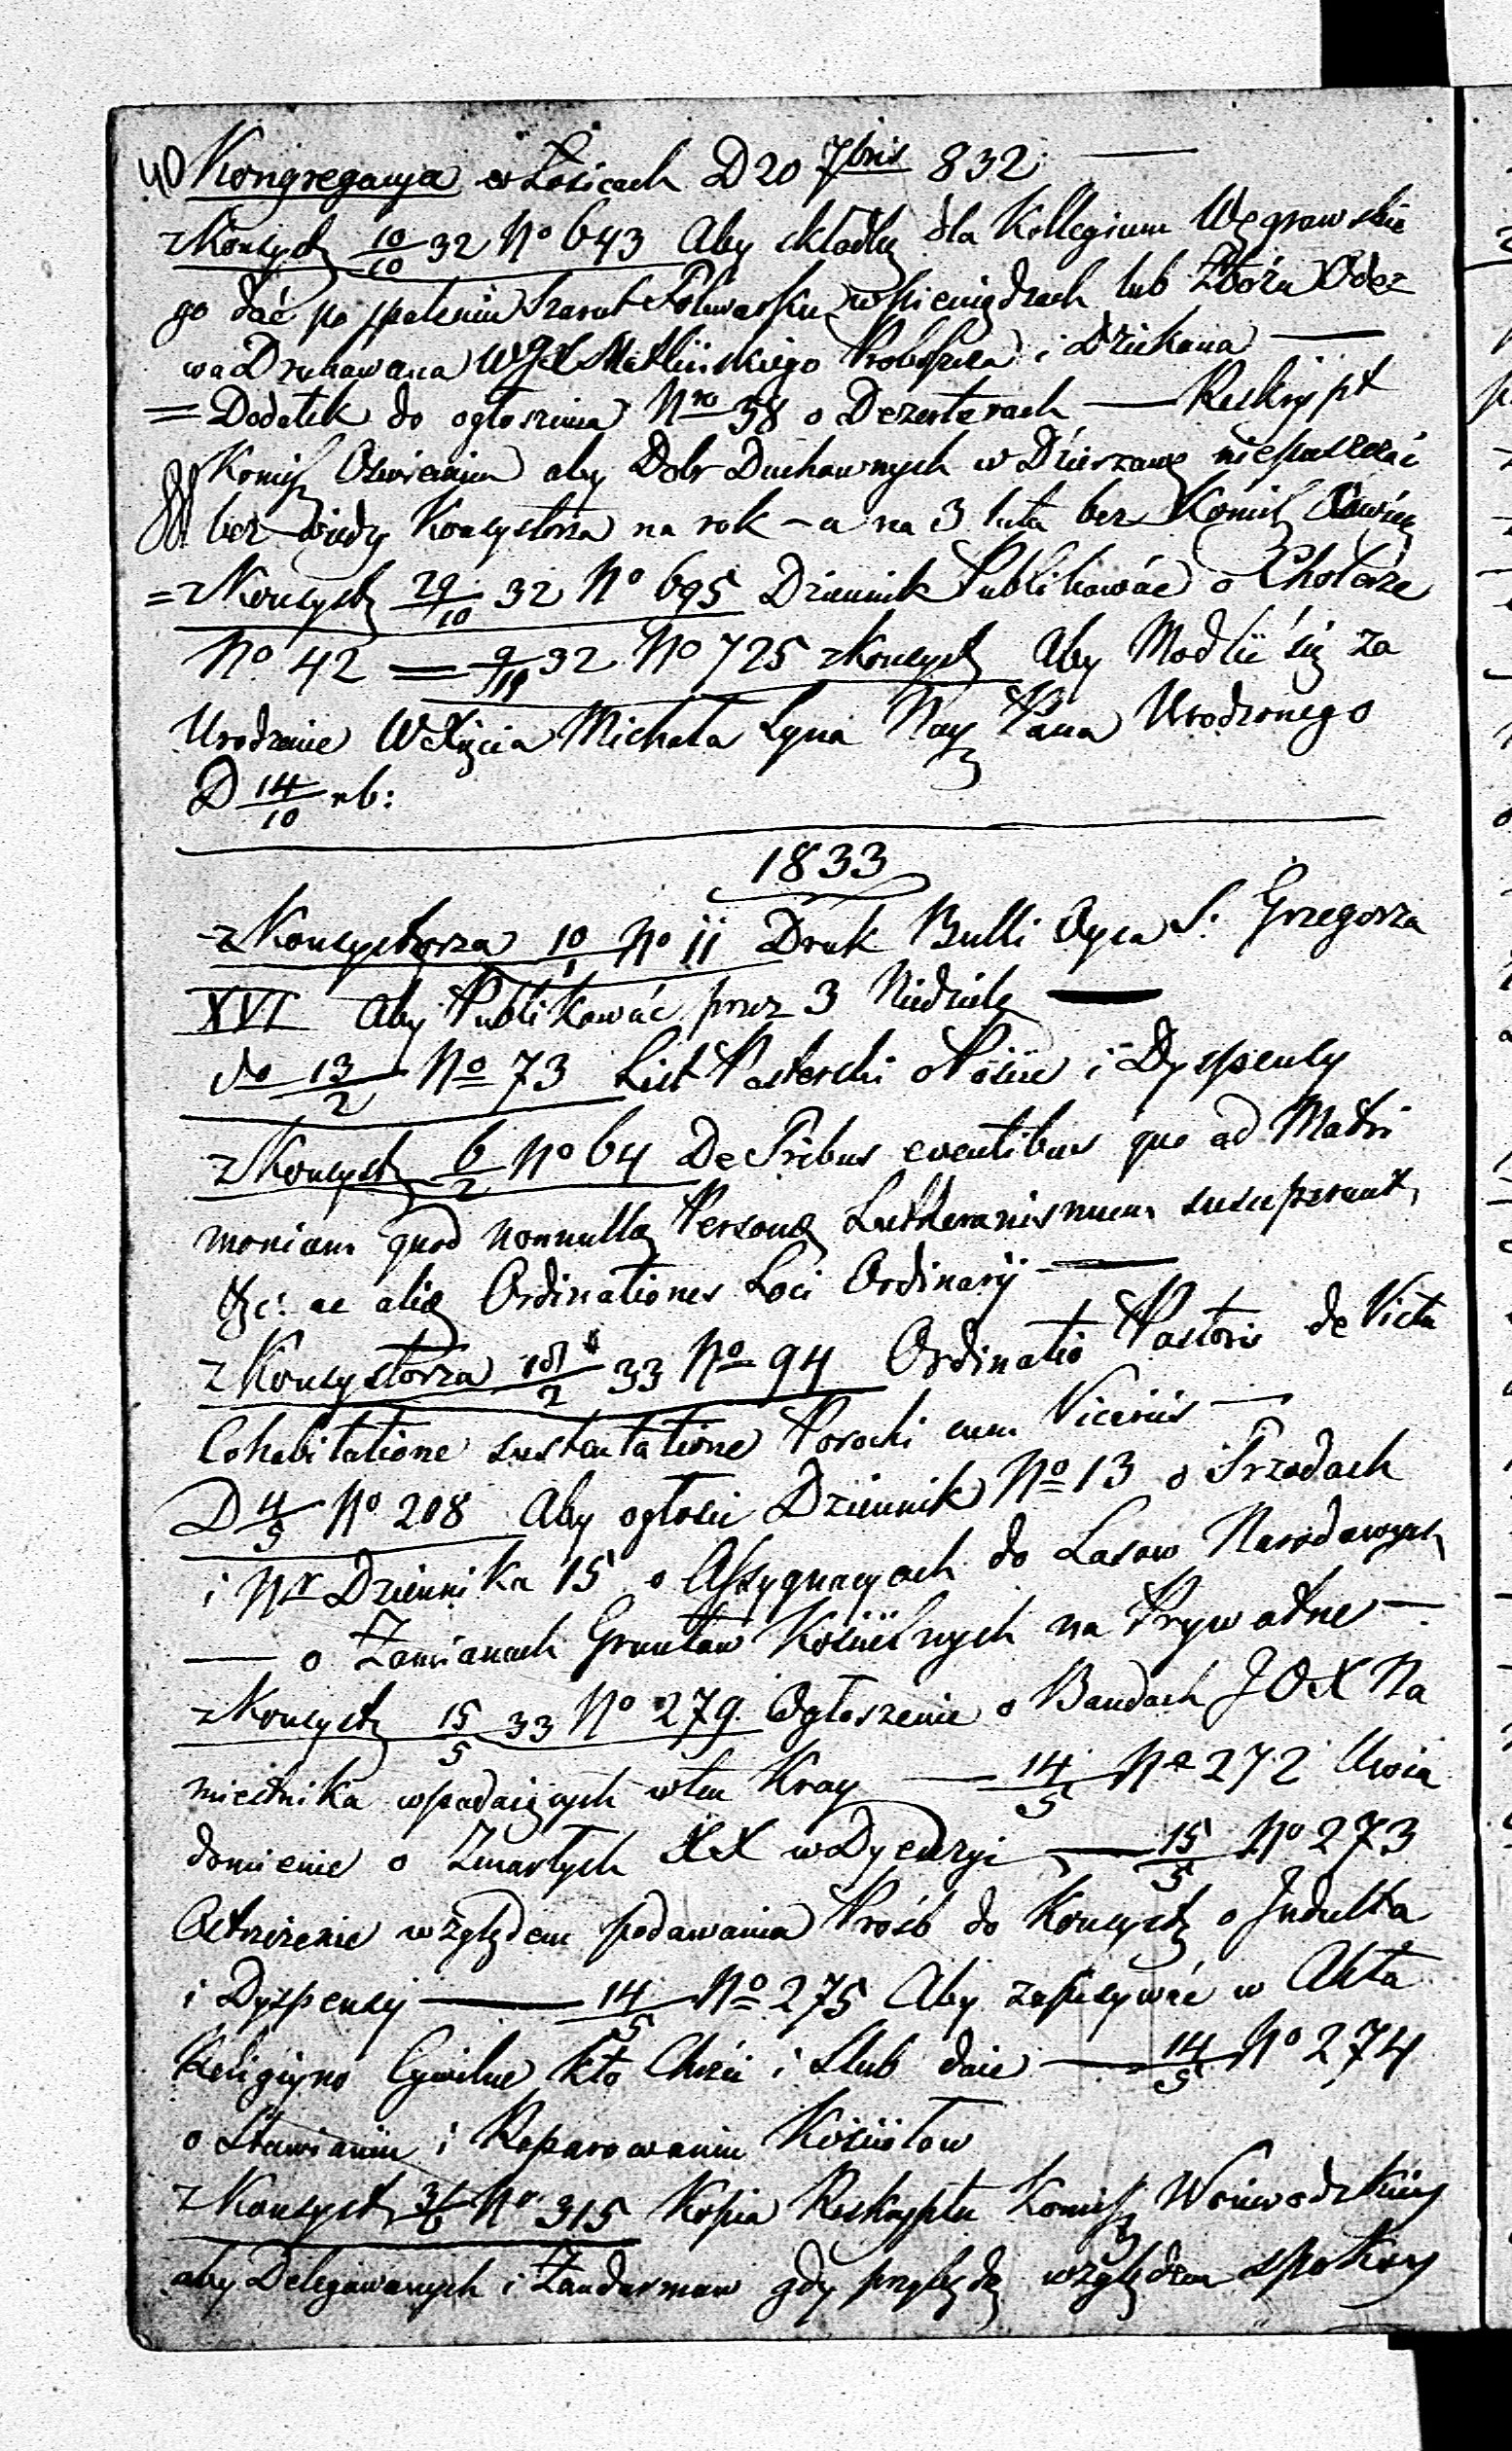 40 Kongregacya w Łosicach D 20 7bris 832 —
z Konsyst 10/10 32 No 643 Aby składkę dla Kollegium Węgrowskie
go dać po spaleniu Folwarku w pieniądzach lub Zbożu Odez
wa Drukowana Proboszcza i Dziekana —
= Dodatek do ogłoszenia Nro 38 o Dezerterach — Reskrypt
Komiss Oswiecenia aby Dobr Duchownych w Dzierzawę niepuszczać
bez wiedzy Konsystorza na rok – a na 3 lata bez Komiss Oswiec
= z Konsyst 29/10 32 No 695 Dziennik Publikować o Cholerze
No 42 = 9/11 32 No 725 z Konsyst Aby Modlić się za
Urodzenie WXięcia Michała Syna Nay Pana Urodzonego
D 14/10 rb:
1833
z Konsystorza 10/1 No 11 Druk Bulli Oyca S. Grzegorza
XVI Aby Publikować przez 3 Niedziele —
do 13/2 No 73 List Pasterski o Poście i Dyspensy
z Konsyst 6/2 No 64 De Tribus eventibus quo ad Matri
monium quod nonnullę Personę Lutheranismum susceperunt,
&c: ac alię Ordinationes Loci Ordinarij —
z Konsystorza 18/2 33 No 94 Ordinatio Pastoris de Victu
Cohabitatione sustentatione Parochi cum Vicariis —
D 4/5 No 208 Aby ogłosić Dziennik No 13 o
i Nr Dziennika 15 o Assygnacyach do Lasow Narodowych
— o Zamianach Gruntow Kościelnych na Prywatne —
z Konsyst 15/5 33 No 279 Ogłoszenie o Bandach JOX Na
miestnika wpadaiących w ten Kray — 14/5 No 272 Uwia
domienie o Zmarłych XX w Dyecezyi — 15/5 No 273
Ostrzeżenie względem podawania Prośb do Konsyst o Indulta
i Dyspensy — 14/5 No 275 Aby zapisywać w Akta
Religiyno Cywilne kto Chrzci i Slub daie — 14/5 No 274
o Stawianiu i Reparowaniu Kościołow
z Konsyst No 315 Kopia Reskryptu Komiss Woiewodzkiey
aby Delegowanych i Żandarmow gdy przybędą względem